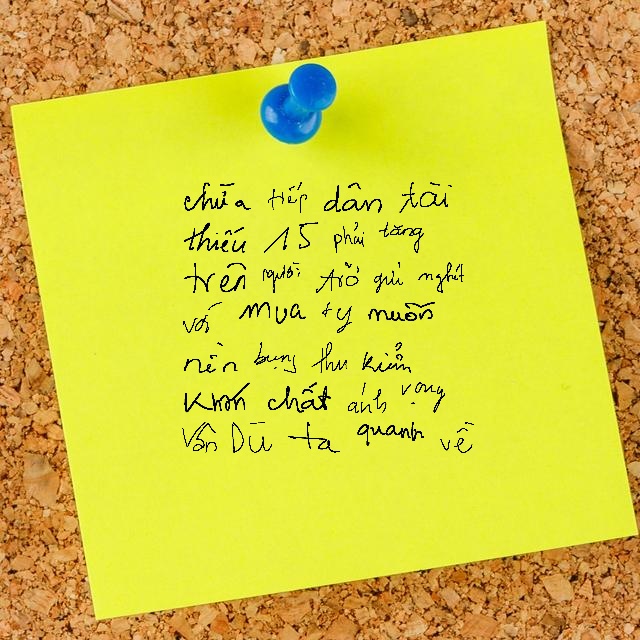 chữa tiếp dân tài
thiếu 15 phải tăng
trên người trở gửi nghít
với mua ty muốn
nên bụng thu kiểm
khốn chất ánh vọng
vấn Dũ ta quanh về